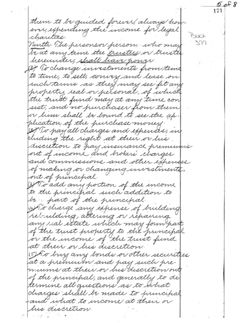 5 of 8
them to be guided forever always how-
ever expending the income for legal
charities
Ninth: The person or persons who may
be at any time the trustee or trustees
hereunder shall have power
to change investments from time
to time to sell convey and lease on
such terms as they may see fit any
property real or personal of which
the trust fund may at any time con-
sist and no purchaser from them
or him shall be bound to see the ap-
plication of the purchase money
to pay all charges and expenses in-
cluding the right at their or his
discretion to pay insurance premiums
out of income and brokers charges
and commissions and other expenses
of making or changing investments
out of principal
to add any portion of the income
to the principal such addition to
be part of the principal
to charge any expense of building
rebuilding altering or repairing
any real estate which may form part
of the trust property to the principal
or the income of the trust fund
at their or his discretion
to buy any bonds or other securities
at a premium and pay such pre-
miums at their or his discretion out
of the principal and generally to de-
termine all questions as to what
charges shall be made to principal
and what to income at their or
his discretion